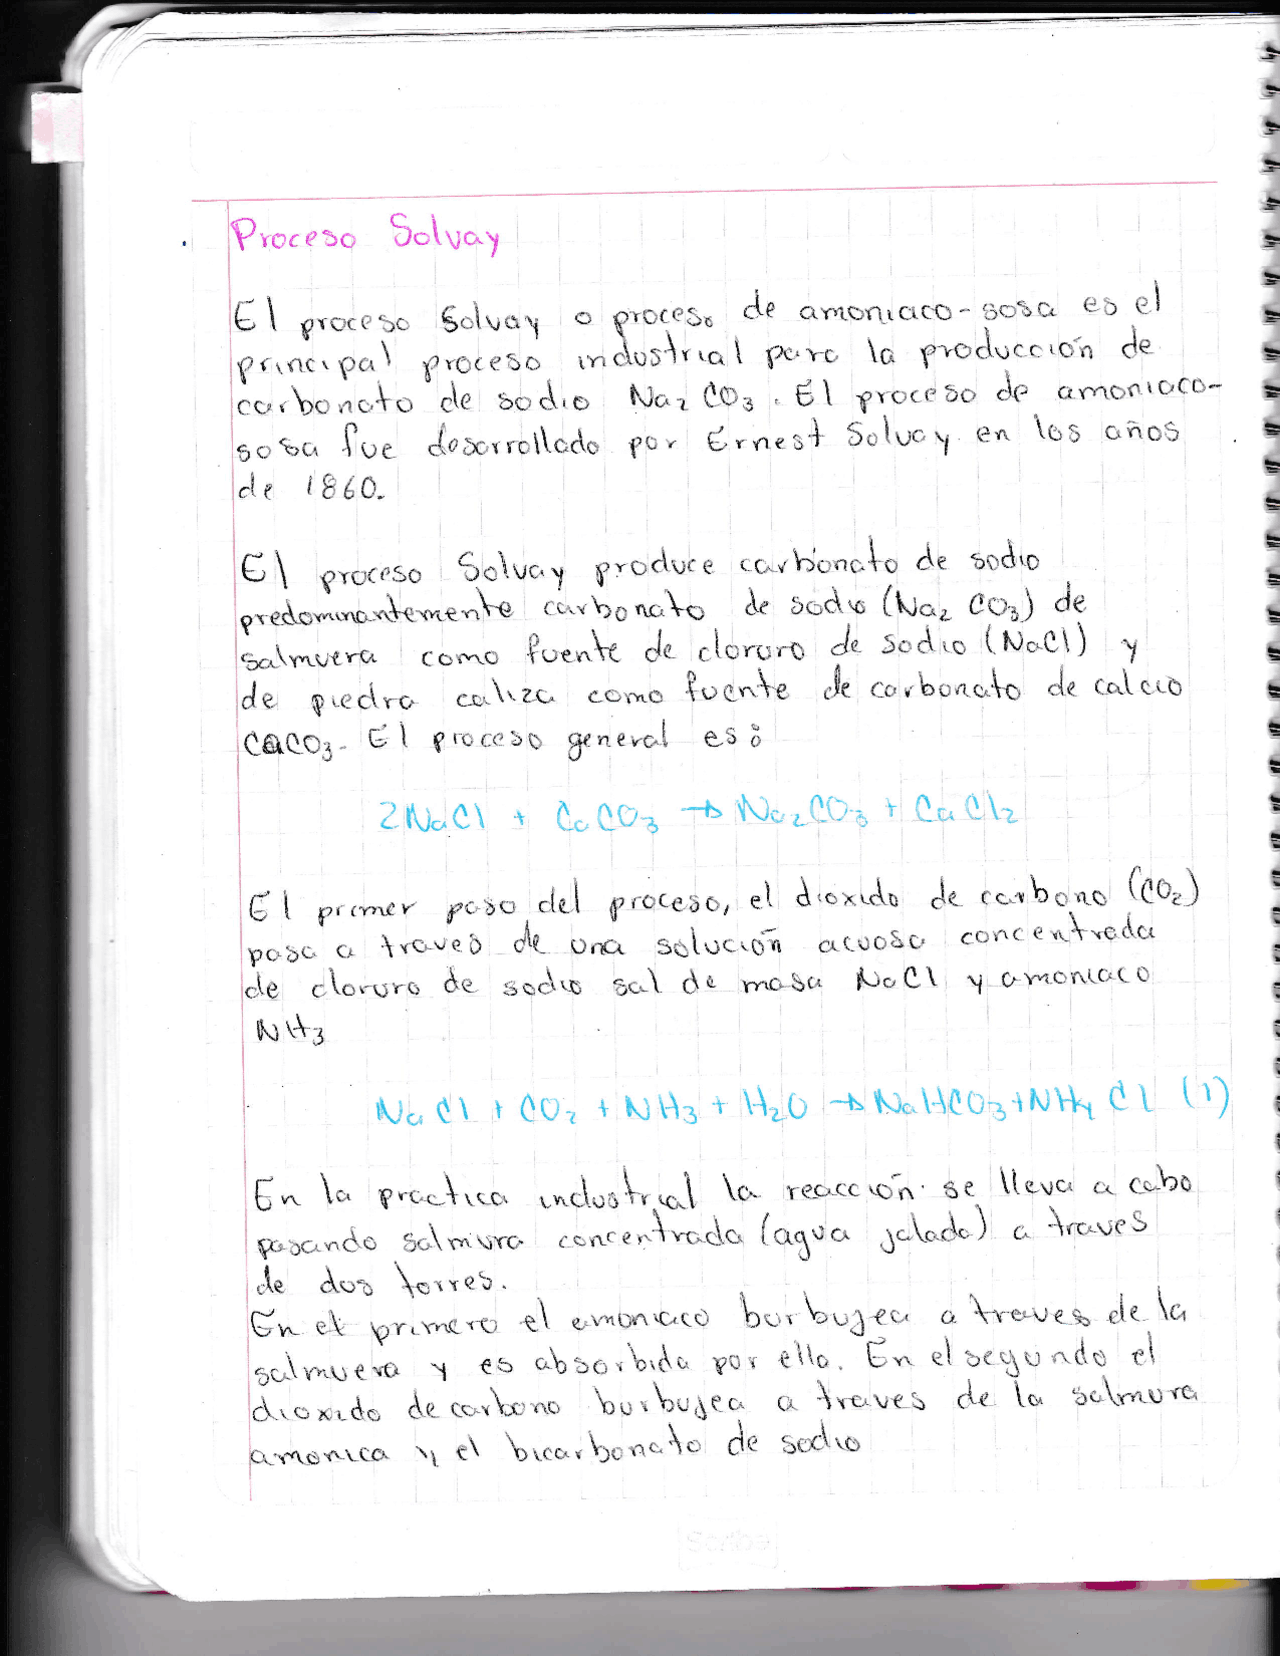 Proceso Solvay
El proceso Solvay o proceso de amoniaco-sosa es el
principal proceso industrial para la producción de
carbonato de sodio Na2 CO3. El proceso de amoniaco-
sosa fue desarrollado por Ernest Solvay en los años
de 1860.
El proceso Solvay produce carbonato de sodio
predominantemente carbonato de sodio (Na2 CO3) de
salmuera como fuente de cloruro de sodio (NaCl) y
de piedra caliza como fuente de carbonato de calcio
CaCO3. El proceso general es:
2NaCl + CaCO3 → Na2CO3 + CaCl2
El primer paso del proceso, el dioxido de carbono (CO2)
pasa a traves de una solución acuosa concentrada
de cloruro de sodio sal de masa NaCl y amoniaco
NH3
NaCl + CO2 + NH3 + H2O → NaHCO3+NH4 Cl (1)
En la practica industrial la reacción se lleva a cabo
pasando salmura concentrada (agua jalada) a traves
de dos torres.
En el primero el amoniaco burbujea a traves de la
salmuera y es absorbida por ello. En el segundo el
dioxido de carbono burbujea a traves de la salmura
amonica y el bicarbonato de sodio
Scribe